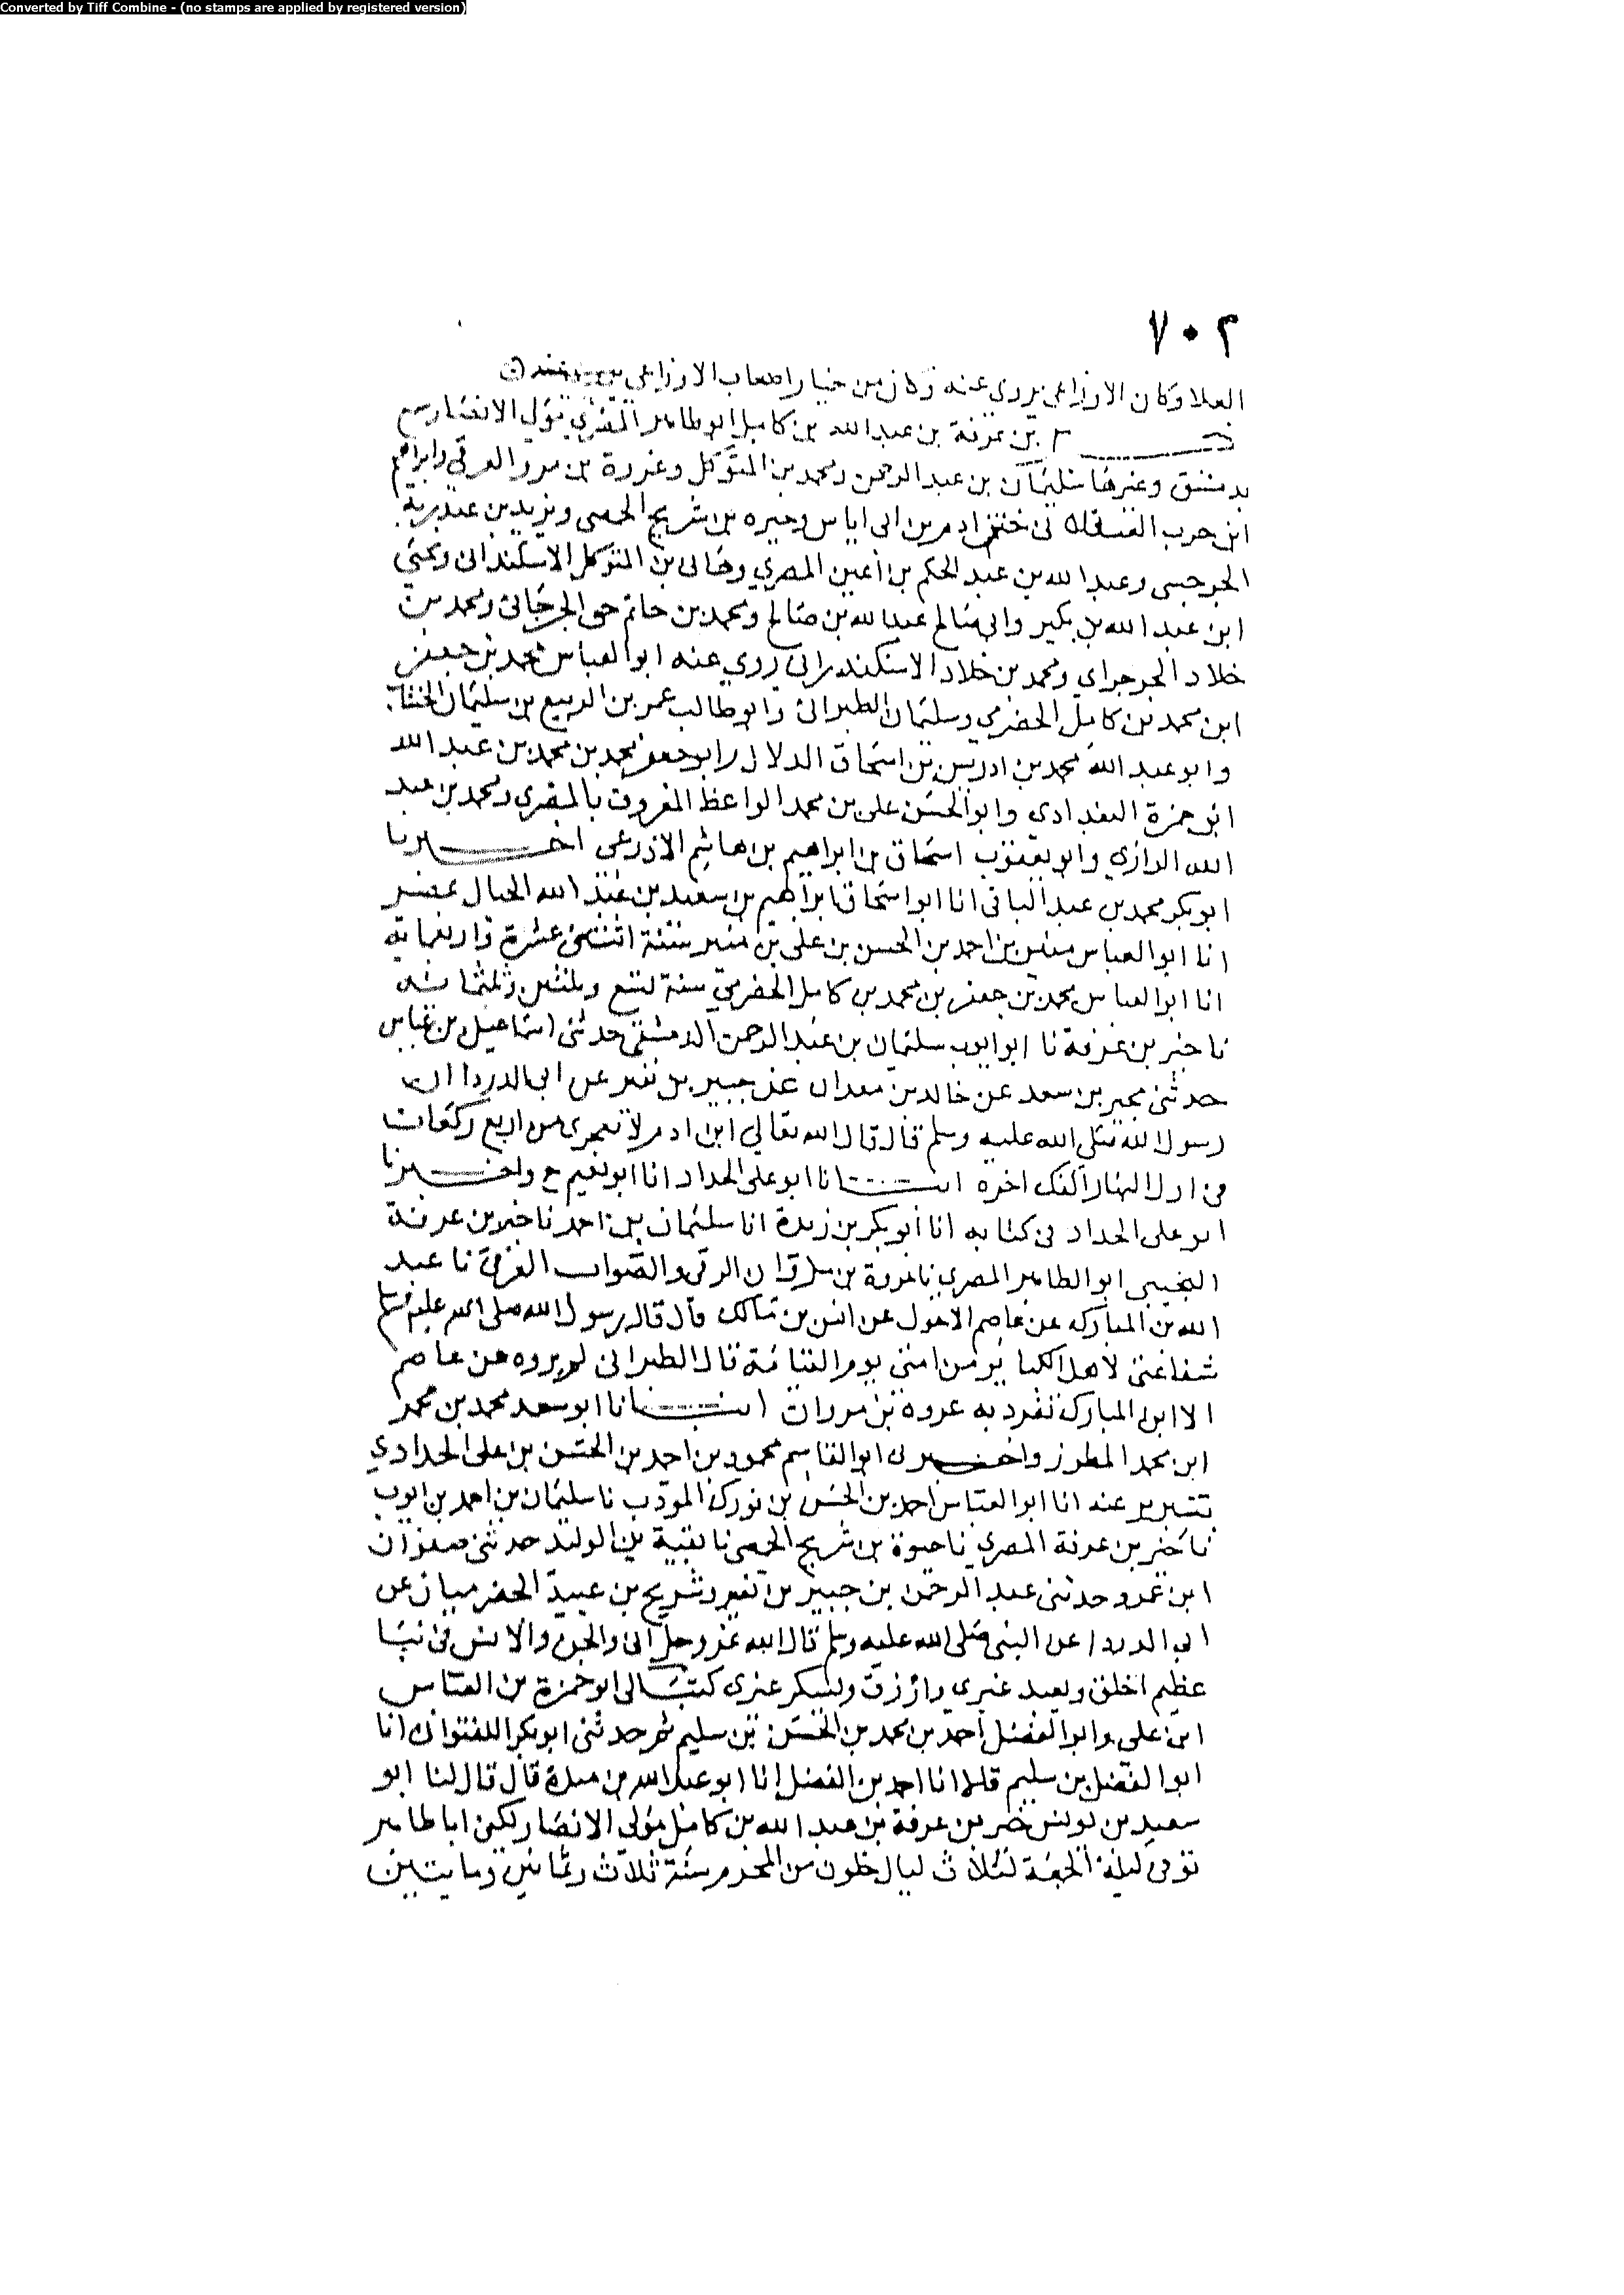 Converted by Tiff Combine - (no stamps are applied by registered version)
٧٠٢
العلا وكان الاوزاعي يروي عنه وكان من خيار اصحاب الاوزاعي
بن عرفة بن عبد الله بن كامل ابو طاهر المصري مولى الانصار سمع
بدمشق وغيرها سليمان بن عبد الرحمن ومحمد بن المتوكل وعروة بن مروان العرقي وابراهيم
ابن حرب العسقلاني ادم بن ابي اياس وحيوه بن شريح الحمصي ويزيد بن عبد ربه
الجرجسي وعبد الله بن عبد الحكم بن اعين المصري وهانئ بن المتوكل الاسكندراني ويحيى
ابن عبد الله بن بكير وابي صالح عبد الله بن صالح ومحمد بن حاتم الجرجراي ومحمد بن
خلاد الجرجراي ومحمد بن خلاد الاسكندراني روى عنه ابو العباس محمد بن جعفر
ابن محمد بن كامل الحضرمي وسليمان الطبراني وابو طالب عمر بن الربيع بن سليمان الخشاب
وابو عبد الله محمد بن ادريس بن اسحاق الدلال وابو جعفر محمد بن محمد بن عبد الله
ابن حمزة البغدادي وابو الحسن علي بن محمد الواعظ المعروف بالمصري ومحمد بن عبد
الله الرازي وابو يعقوب اسحاق بن ابراهيم بن هاشم الاذرعي اخبرنا
ابو بكر محمد بن عبد الباقي انا ابو اسحاق ابراهيم بن سعيد بن عبد الله الحبال بمصر
انا ابو العباس منير بن احمد بن الحسن بن علي بن منير سنة اثنتي عشرة واربعماية
انا ابو العباس محمد بن جعفر بن محمد بن كامل الحضرمي سنة تسع وثلثين وثلثماية
نا خير بن عرفة نا ابو ايوب سليمان بن عبد الرحمن الدمشقي حدثني اسماعيل بن عياش
حدثني بحير بن سعد عن خالد بن معدان عن جبير بن نفير عن ابي الدرداء ان
رسول الله صلى الله عليه وسلم قال قال الله تعالى ابن ادم لا تعجزن من اربع ركعات
من اول النهار اكفك اخره انبانا ابو علي الحداد انا ابو نعيم ح واخبرنا
ابو علي الحداد في كتابه انا ابو بكر بن ريدة انا سليمان بن احمد نا خير بن عرفة
التجيبي ابو الطاهر المصري نا عروة بن مروان الرقي والصواب العرقي نا عبد
الله بن المبارك عن عاصم الاحول عن انس بن مالك قال قال رسول الله صلى الله عليه وسلم
شفاعتي لاهل الكباير من امتي يوم القيامة قال الطبراني لم يروه عن عاصم
الا ابن المبارك تفرد به عروة بن مروان انبانا ابو سعد محمد بن محمد
ابن محمد المطرز واخبرني ابو القاسم محمود بن احمد بن الحسن بن علي الحدادي
بتبريز عنه انا ابو العباس احمد بن الحسن بن فورك المودب نا سليمان بن احمد بن ايوب
نا خير بن عرفة المصري نا حيوة بن شريح الحمصي نا بقية بن الوليد حدثني صفوان
ابن عمرو حدثني عبد الرحمن بن جبير بن نفير وشريح بن عبيد الحضرميان عن
ابي الدرداء عن النبي صلى الله عليه وسلم قال الله عز وجل اني والجن والانس في نبا
عظيم اخلق ويعبد غيري وارزق ويشكر غيري كتب الي ابو حمزة بن العباس
ابن علي وابو الفضل احمد بن محمد بن الحسن بن سليم ثم حدثني ابو بكر اللفتواني انا
ابو الفضل بن سليم قالا انا احمد بن الفضل انا ابو عبد الله بن مندة قال قال لنا ابو
سعيد بن يونس خير بن عرفة بن عبد الله بن كامل مولى الانصار يكنى ابا طاهر
توفي ليلة الجمعة لثلاث ليال خلون من المحرم سنة ثلاث وثمانين ومايتين